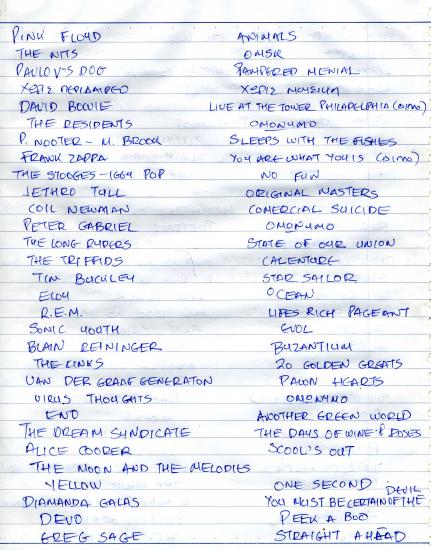 PINK FLOYD ANIMALS
THE NITS OMSK
PAVLOV'S DOG PAMPERED MENIAL
ΧΩΡΙΣ ΠΕΡΙΔΕΡΑΙΟ ΧΩΡΙΣ ΜΟΥΣΙΚΗ
DAVID BOWIE LIVE AT THE TOWER PHILADELPHIA (διπλο)
THE RESIDENTS ΟΜΟΝΥΜΟ
P. NOOTER - M. BROCK SLEEPS WITH THE FISHES
FRANK ZAPPA YOU ARE WHAT YOU IS (διπλο)
THE STOOGES - IGGY POP NO FUN
JETHRO TULL ORIGINAL MASTERS
COIL NEWMAN COMERCIAL SUICIDE
PETER GABRIEL ΟΜΟΝΥΜΟ
THE LONG RYDERS STATE OF OUR UNION
THE TRIFFIDS CALENTURE
TIM BUCKLEY STAR SAILOR
ELOY OCEAN
R.E.M. LIFES RICH PAGEANT
SONIC YOUTH EVOL
BLAIN REININGER BYZANTIUM
THE KINKS 20 GOLDEN GREATS
VAN DER GRAAF GENERATON PAWN HEARTS
VIRUS THOUGHTS ΟΜΟΝΥΜΟ
ENO ANOTHER GREEN WORLD
THE DREAM SYNDICATE THE DAYS OF WINE & ROSES
ALICE COOPER SCOOL'S OUT
THE MOON AND THE MELODIES
YELLOW ONE SECOND
DIAMANDA GALAS YOU MUST BE CERTAIN OF THE DEVIL
DEVO PEEK A BOO
GREG SAGE STRAIGHT AHEAD